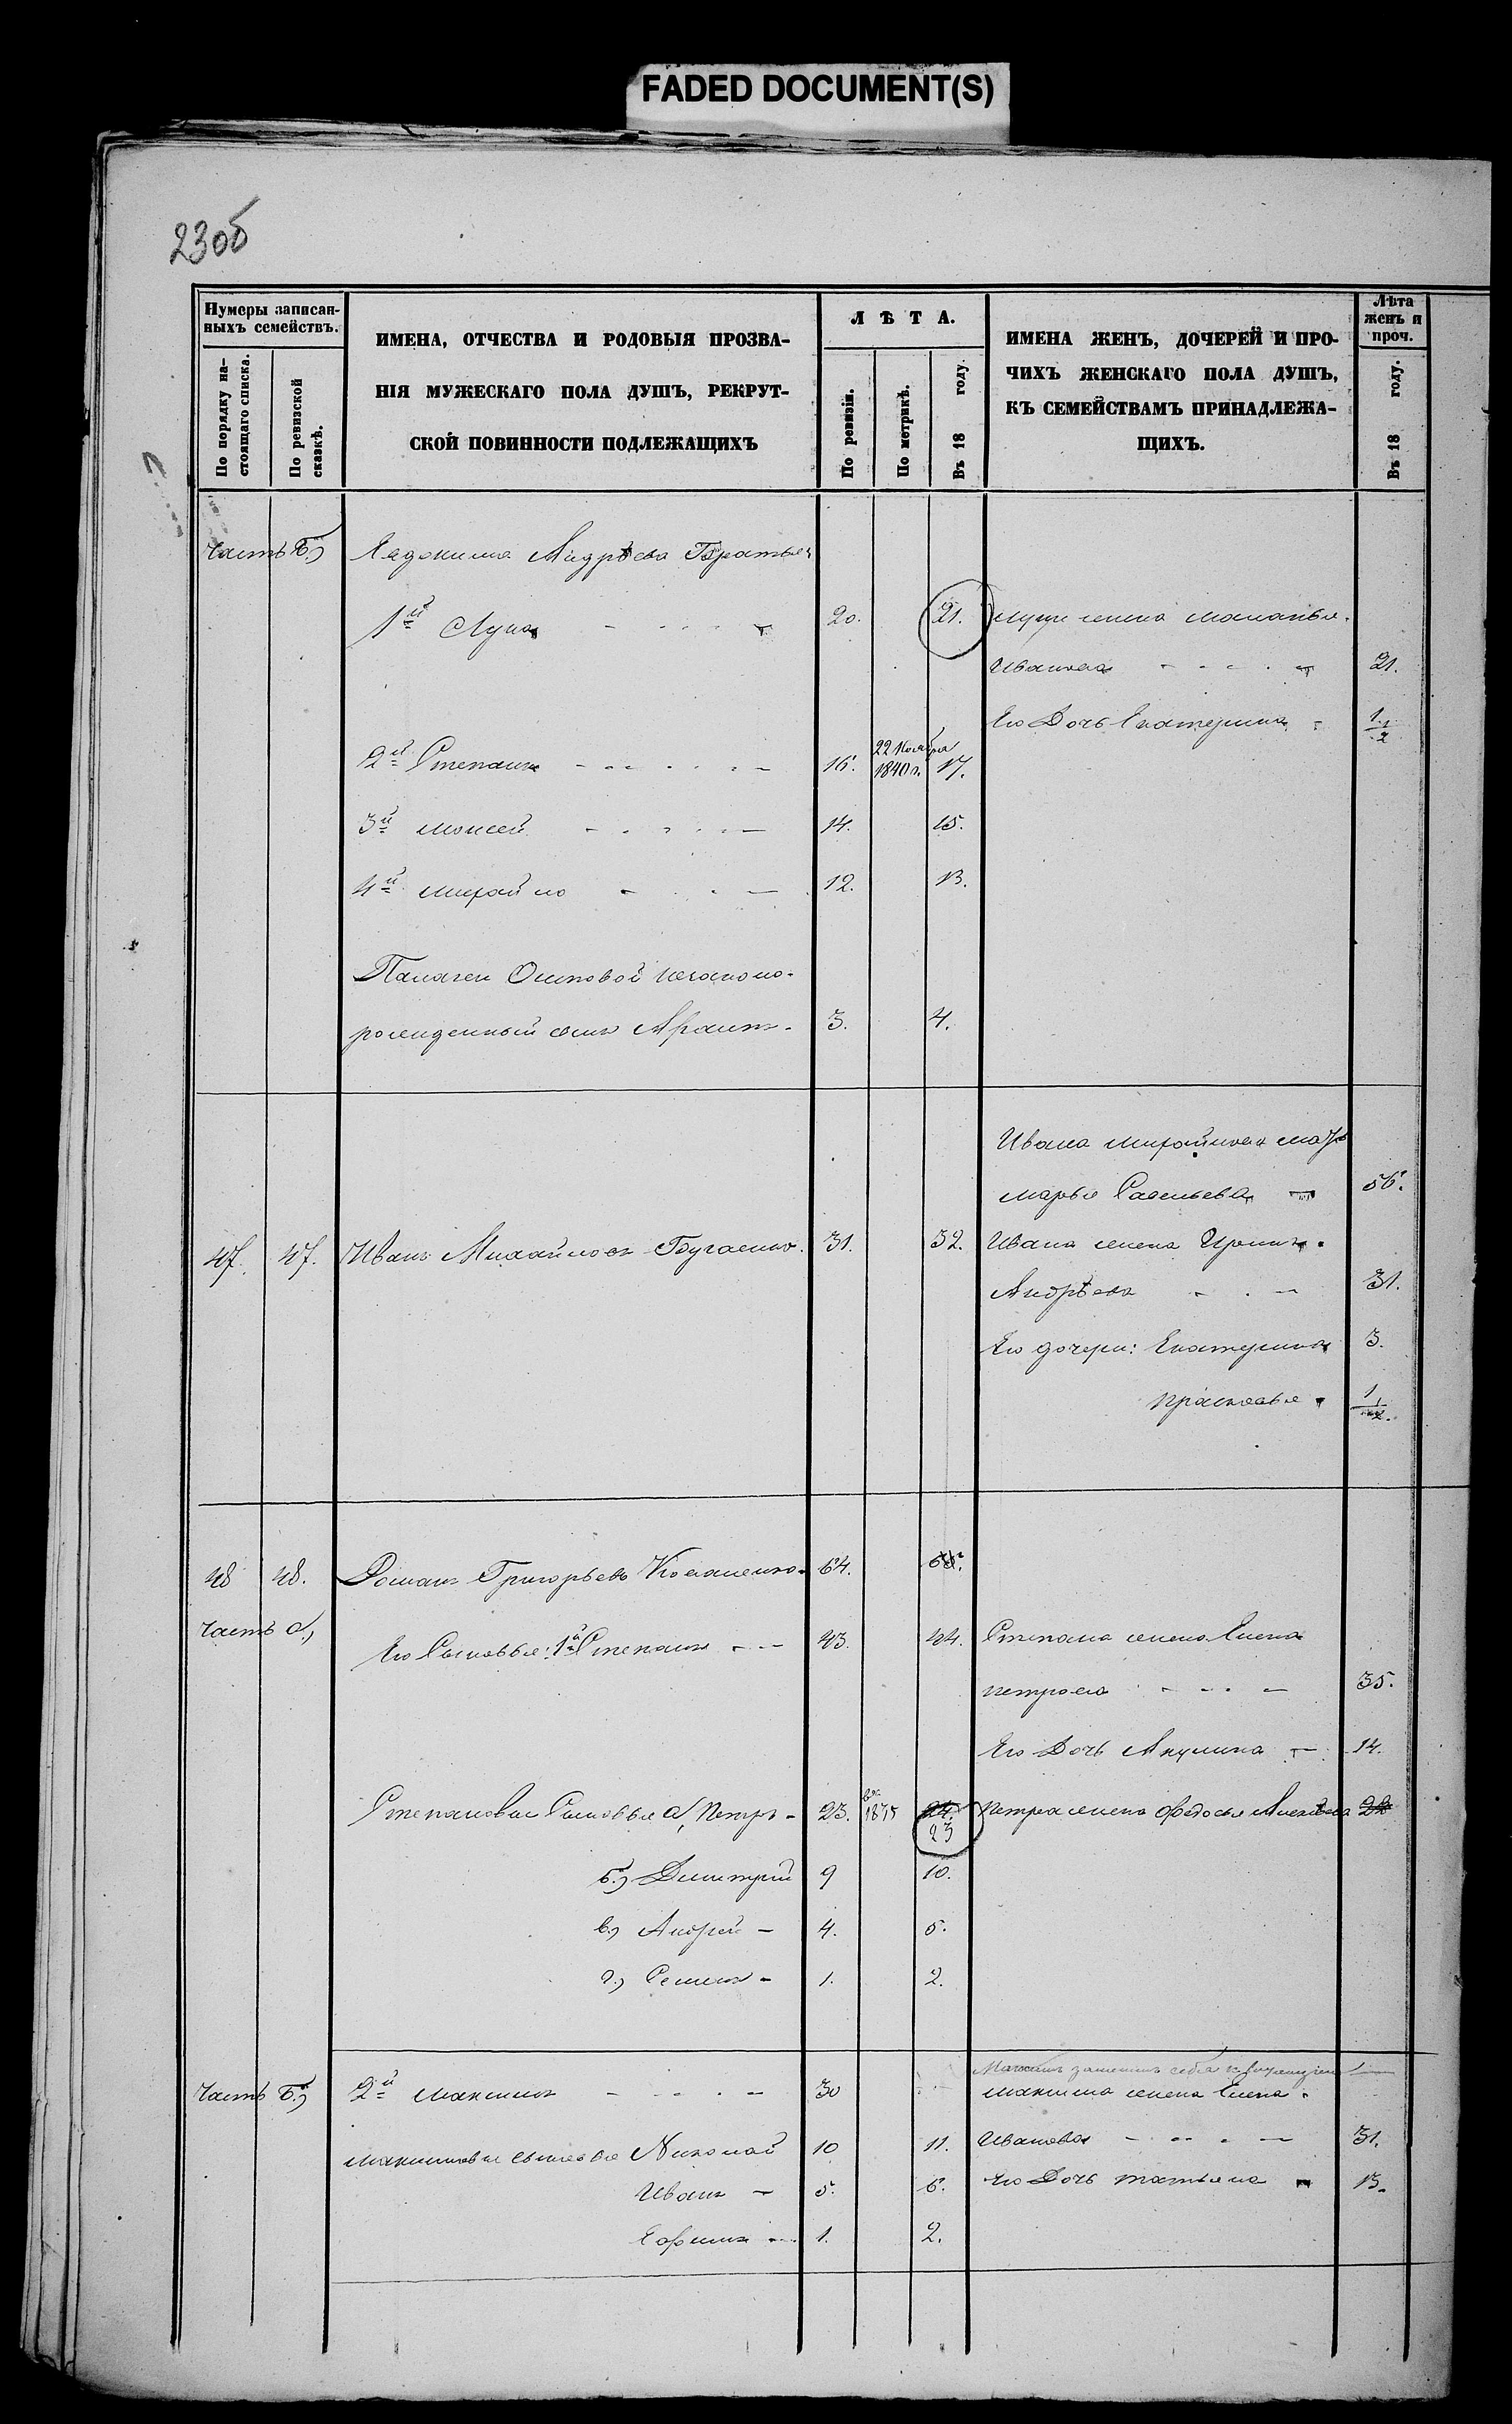 FADED DOCUMENT(S)
230б
Нумеры записан-
ныхъ семействъ.
По порядку на-
стоящаго списка.
По ревизской
сказкѣ.
ИМЕНА, ОТЧЕСТВА И РОДОВЫЯ ПРОЗВА-
НІЯ МУЖЕСКАГО ПОЛА ДУШЪ, РЕКРУТ-
СКОЙ ПОВИННОСТИ ПОДЛЕЖАЩИХЪ
ЛѢТА.
По ревизіи.
По метрикѣ.
Въ 18 году.
ИМЕНА ЖЕНЪ, ДОЧЕРЕЙ И ПРО-
ЧИХЪ ЖЕНСКАГО ПОЛА ДУШЪ,
КЪ СЕМЕЙСТВАМЪ ПРИНАДЛЕЖА-
ЩИХЪ.
Лѣта
женъ и
проч.
Въ 18 году.
Часть Б) Евдокима Андрѣева Братья:
1й Лука 20. 21. Луки жена Маланья
Иванова 21.
Его Дочь Екатерина 1 1/2
2й Степанъ 16. 22 Ноября 1840 г. 17.
3й Моисей 14. 15.
4й Михайло 12. 13.
Палагеи Осиповой незаконо-
рожденный сынъ 3. 4.
Ивана Михайлова мать
Марья Савельева 56.
47. 47. Иванъ Михайловъ Бугаенко. 31. 32. Ивана жена Ирина
Андрѣева 31.
Его дочери: Екатерина 3.
Прасковья 1/2.
48 48. Романъ Григорьевъ 64. 65.
Часть а)
Его Сыновья: 1й Степанъ 43. 44. Степана жена Елена
Петрова 35.
Его Дочь Акулина 14.
Степановы Сыновья а) Петръ - 23. 1835 24. 23 Петра жена Федосья 22
б) Димитрій 9 10.
в) Андрей - 4. 5.
г) Семенъ - 1. 2.
Часть Б) 2й Максимъ 30 Максима жена Елена
Максимовы сыновья Николай 10 11. Иванова 31.
Иванъ - 5. 6. Его Дочь Татьяна 13.
Ефимъ 1. 2.